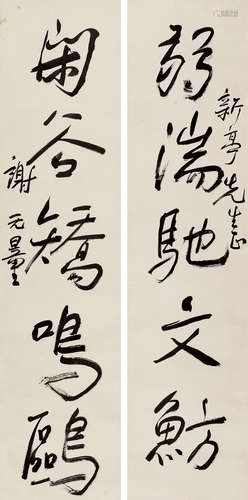 新亭先生正
弱湍馳文魴
閑谷矯鳴鷗
謝无量